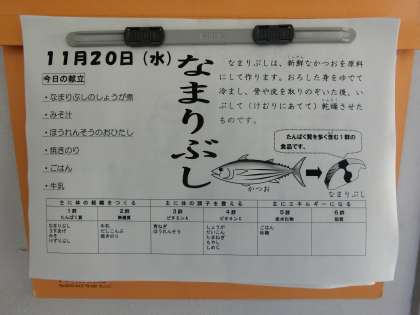 11月20日（水）
今日の献立
・なまりぶしのしょうが煮
・みそ汁
・ほうれんそうのおひたし
・焼きのり
・ごはん
・牛乳
なまりぶし
なまりぶしは、新鮮なかつおを原料
にして作ります。おろした身をゆでて
冷まし、骨や皮を取りのぞいた後、い
ぶして（けむりにあてて）乾燥させた
ものです。
たんぱく質を多く含む1群の
食品です。
かつお
なまりぶし
主に体の組織をつくる
主に体の調子を整える
主にエネルギーになる
1群
たんぱく質
2群
無機質
3群
ビタミンA
4群
ビタミンC
5群
炭水化物
6群
脂質
なまりぶし
みそ
牛乳
焼きのり
ほうれんそう
しょうが
だいこん
たまねぎ
もやし
しめじ
ごはん
砂糖